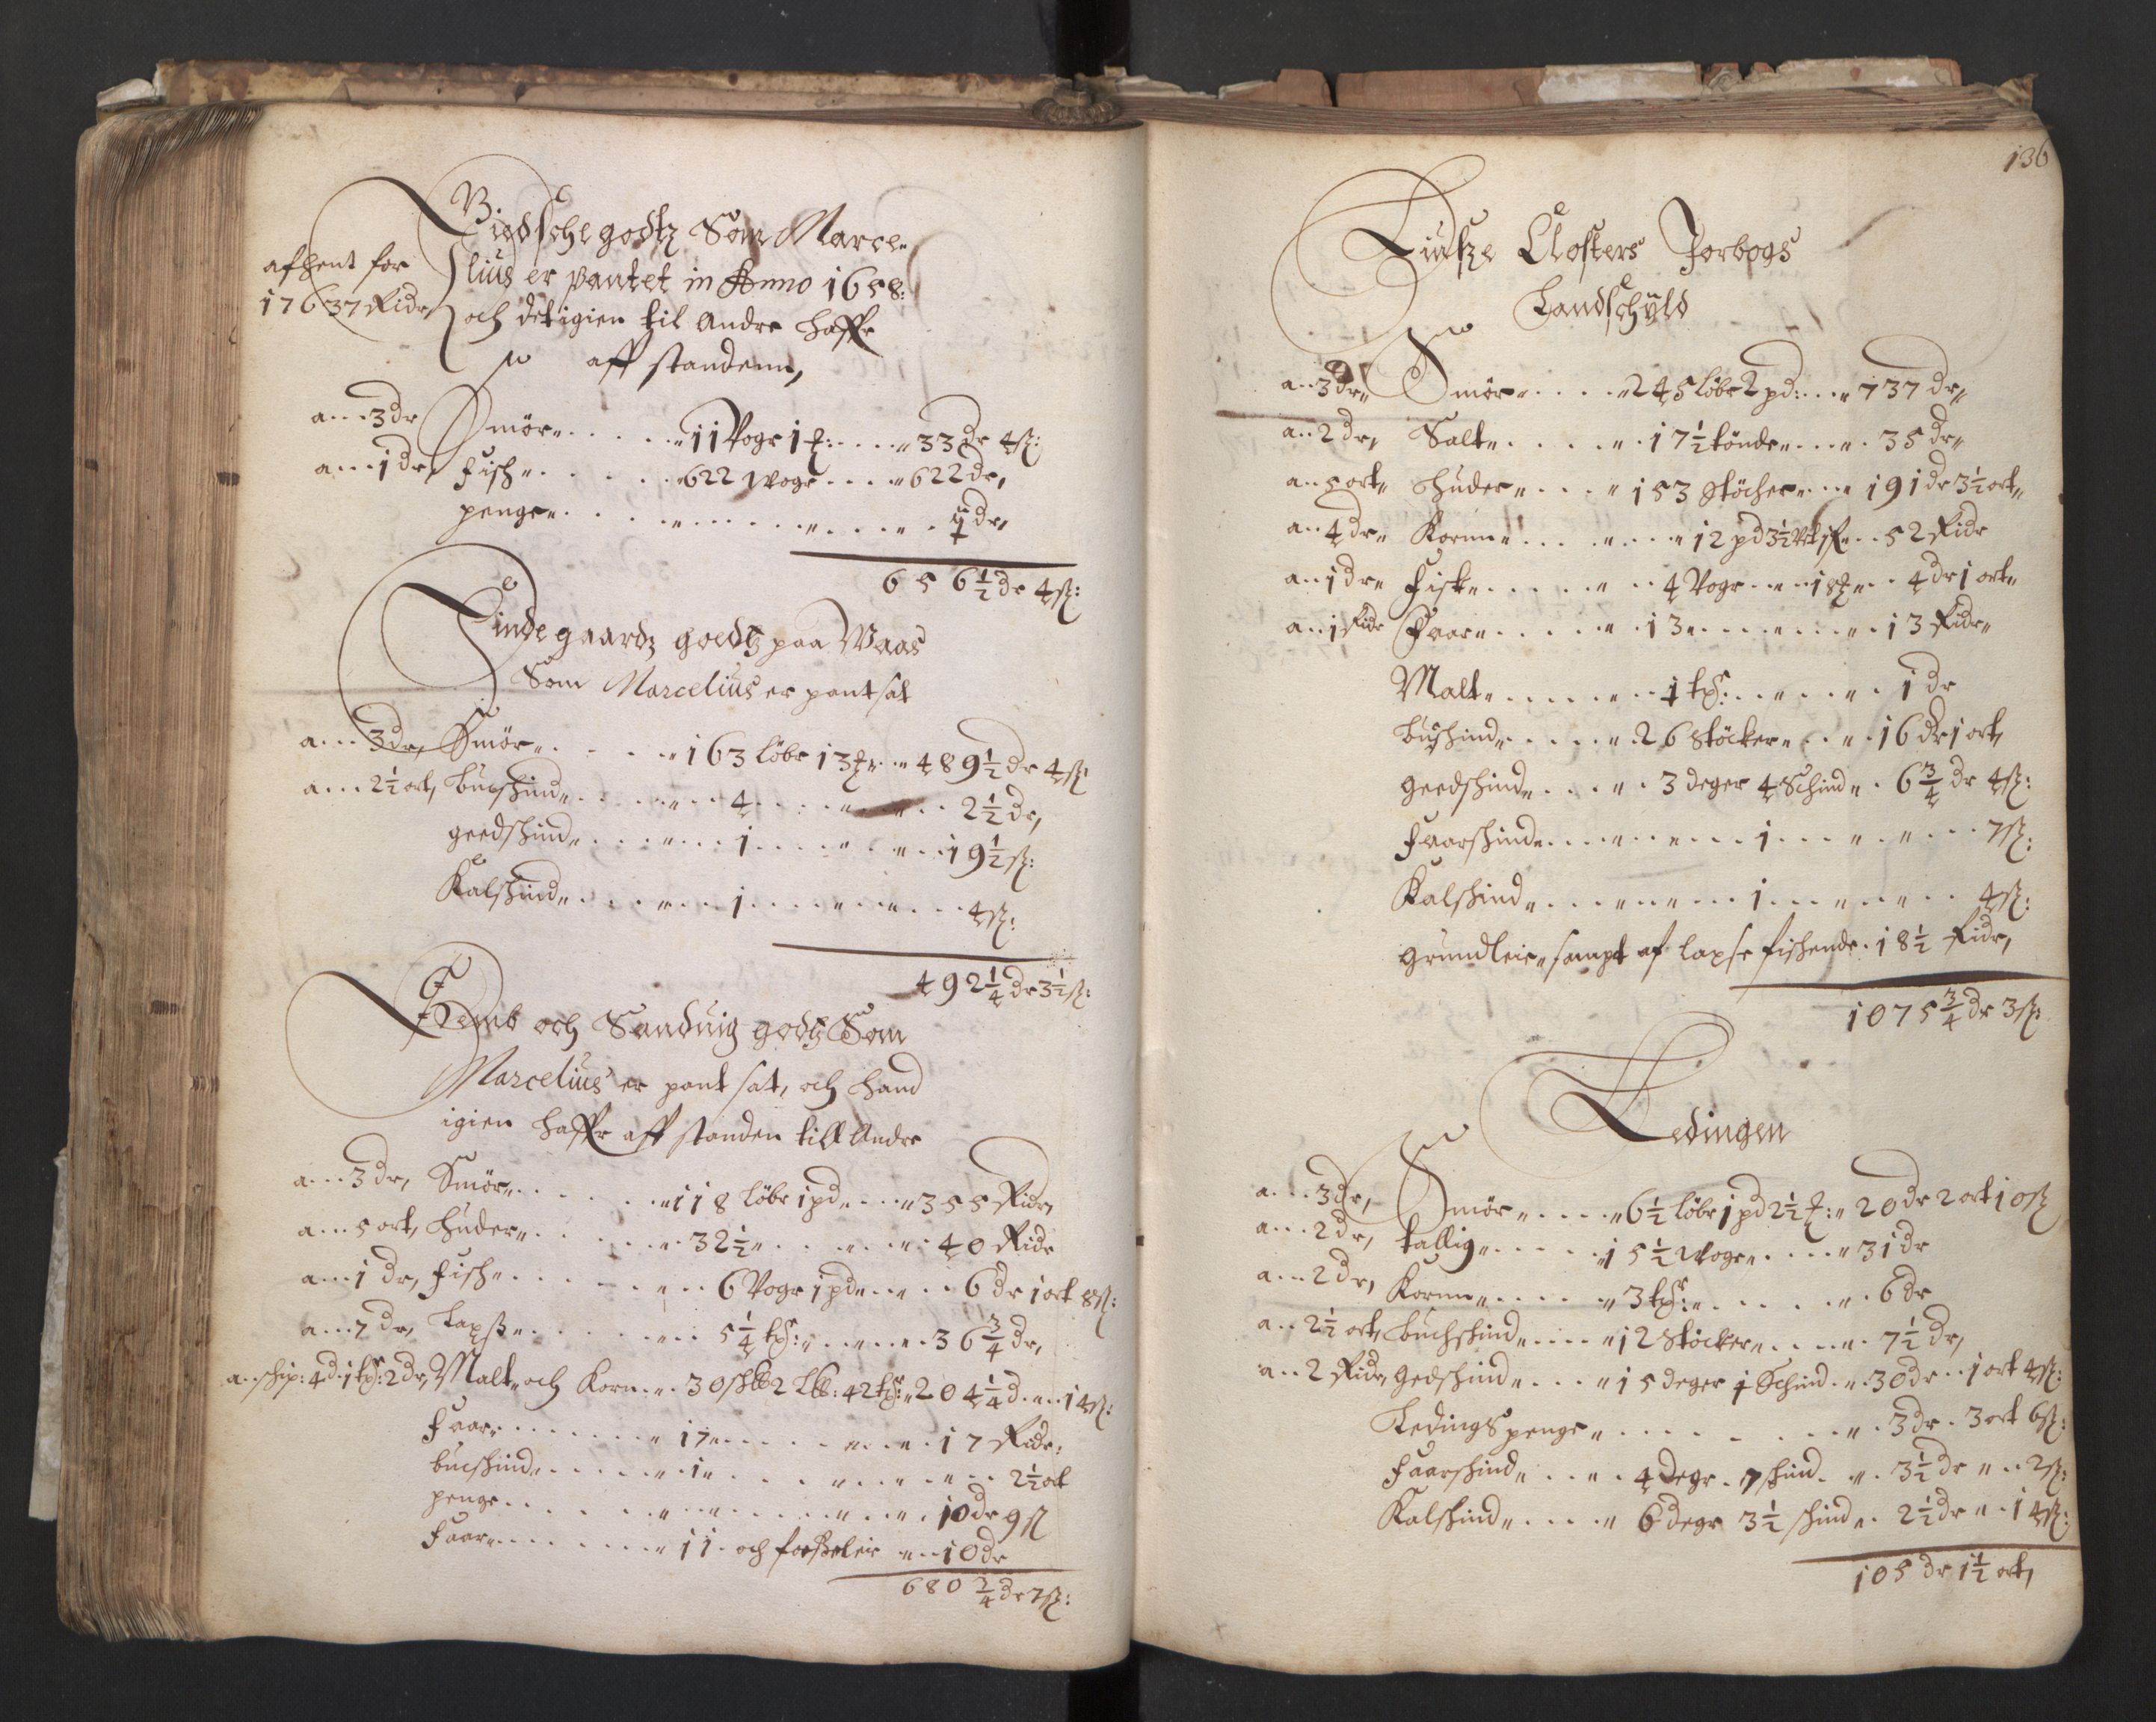 Giedsche godtz Som Marce-
lius er pantet in Anno 1658:
och det igien til Andre haffr
aff standenn,
afhent for
17637 Ridr
a...3 dr Smör.....11 Vogr 1 ℔:....33 dr 4 ß:
a...1 dr, Fisch.....622 Wogr....622 dr,
penge..........dr,
656½ dr 4 ß:
Finde gaardz goedtz paa Waas
Som Marcelius er pantsat
a...3 dr, Smör.....163 löbr 13 ℔..489½ dr 4 ß
a...2½ ort, bucshind.....4......2½ dr,
geedshind......1......19½ ß:
Kalshind......1......4 ß:
492¼ dr 3½ ß:
och Sanduig godtz Som
Marcelius er pant sat, och hand
igien haffr aff standen till Andre
a...3 dr, Smör.....118 löbr 1 pd...355 Ridr,
a...5 ort, huder.....32½.....40 Ridr
a...1 dr, Fisch.....6 Vogr 1 pd....6 dr 1 ort 8 ß:
a...7 dr, Lax.....5¼ .....36¾ dr,
a. ship: 4 d. 2 dr, Malt och Korn.. 204¼ d...14 ß:
Faar.......17......17 Ridr:
bucshind......1......2½ ort
penge..........10 dr 9 ß
Faar.......11 och ...10 dr
680¾ dr 7 ß:
136
Closters Jorbogs
Landschyld
a..3 dr, Smör.....245 löbr 2 pd:...737 dr,
a..2 dr, Salt.....17½ tönde....35 dr,
a..5 ort, huder....153 Stöcher...191 dr 3½ ort,
a..4 dr, Korn.....12 pd ..52 Ridr
a..1 dr, Fisk.....4 Vogr..18 ℔..4 dr 1 ort,
a..1 Ridr Faar.....13......13 Ridr,
Malt......1 ......1 dr
bushind.....26 Stöcker....16 dr 1 ort,
geedshind....3 deger 4 Schind..6¾ dr 4 ß:
Faarshind......1......7 ß:
Kalshind......1......4 ß:
grundleie, sampt af laxse fishende..18½ Ridr,
1075¾ dr 3 ß:
Ledingen
a...3 dr, Smör.....6½ löbr 1 pd 2½ ℔:..20 dr 2 ort 10 ß
a...2 dr, tallig.....15½ Wogr....31 dr
a...2 dr, Korn.....3 .....6 dr
a..2½ ort, buchskind....12 Stöcker....7½ dr,
a..2 Ridr, gedshind....15 deger 1 Schind..30 dr..1 ort 4 ß:
Ledings penge........3 dr..3 ort 6 ß:
Faarshind....4 degr..7 shind...3½ dr...2 ß:
Kalshind....6 degr 3½ shind..2½ dr..14 ß:
105 dr 1½ ort,